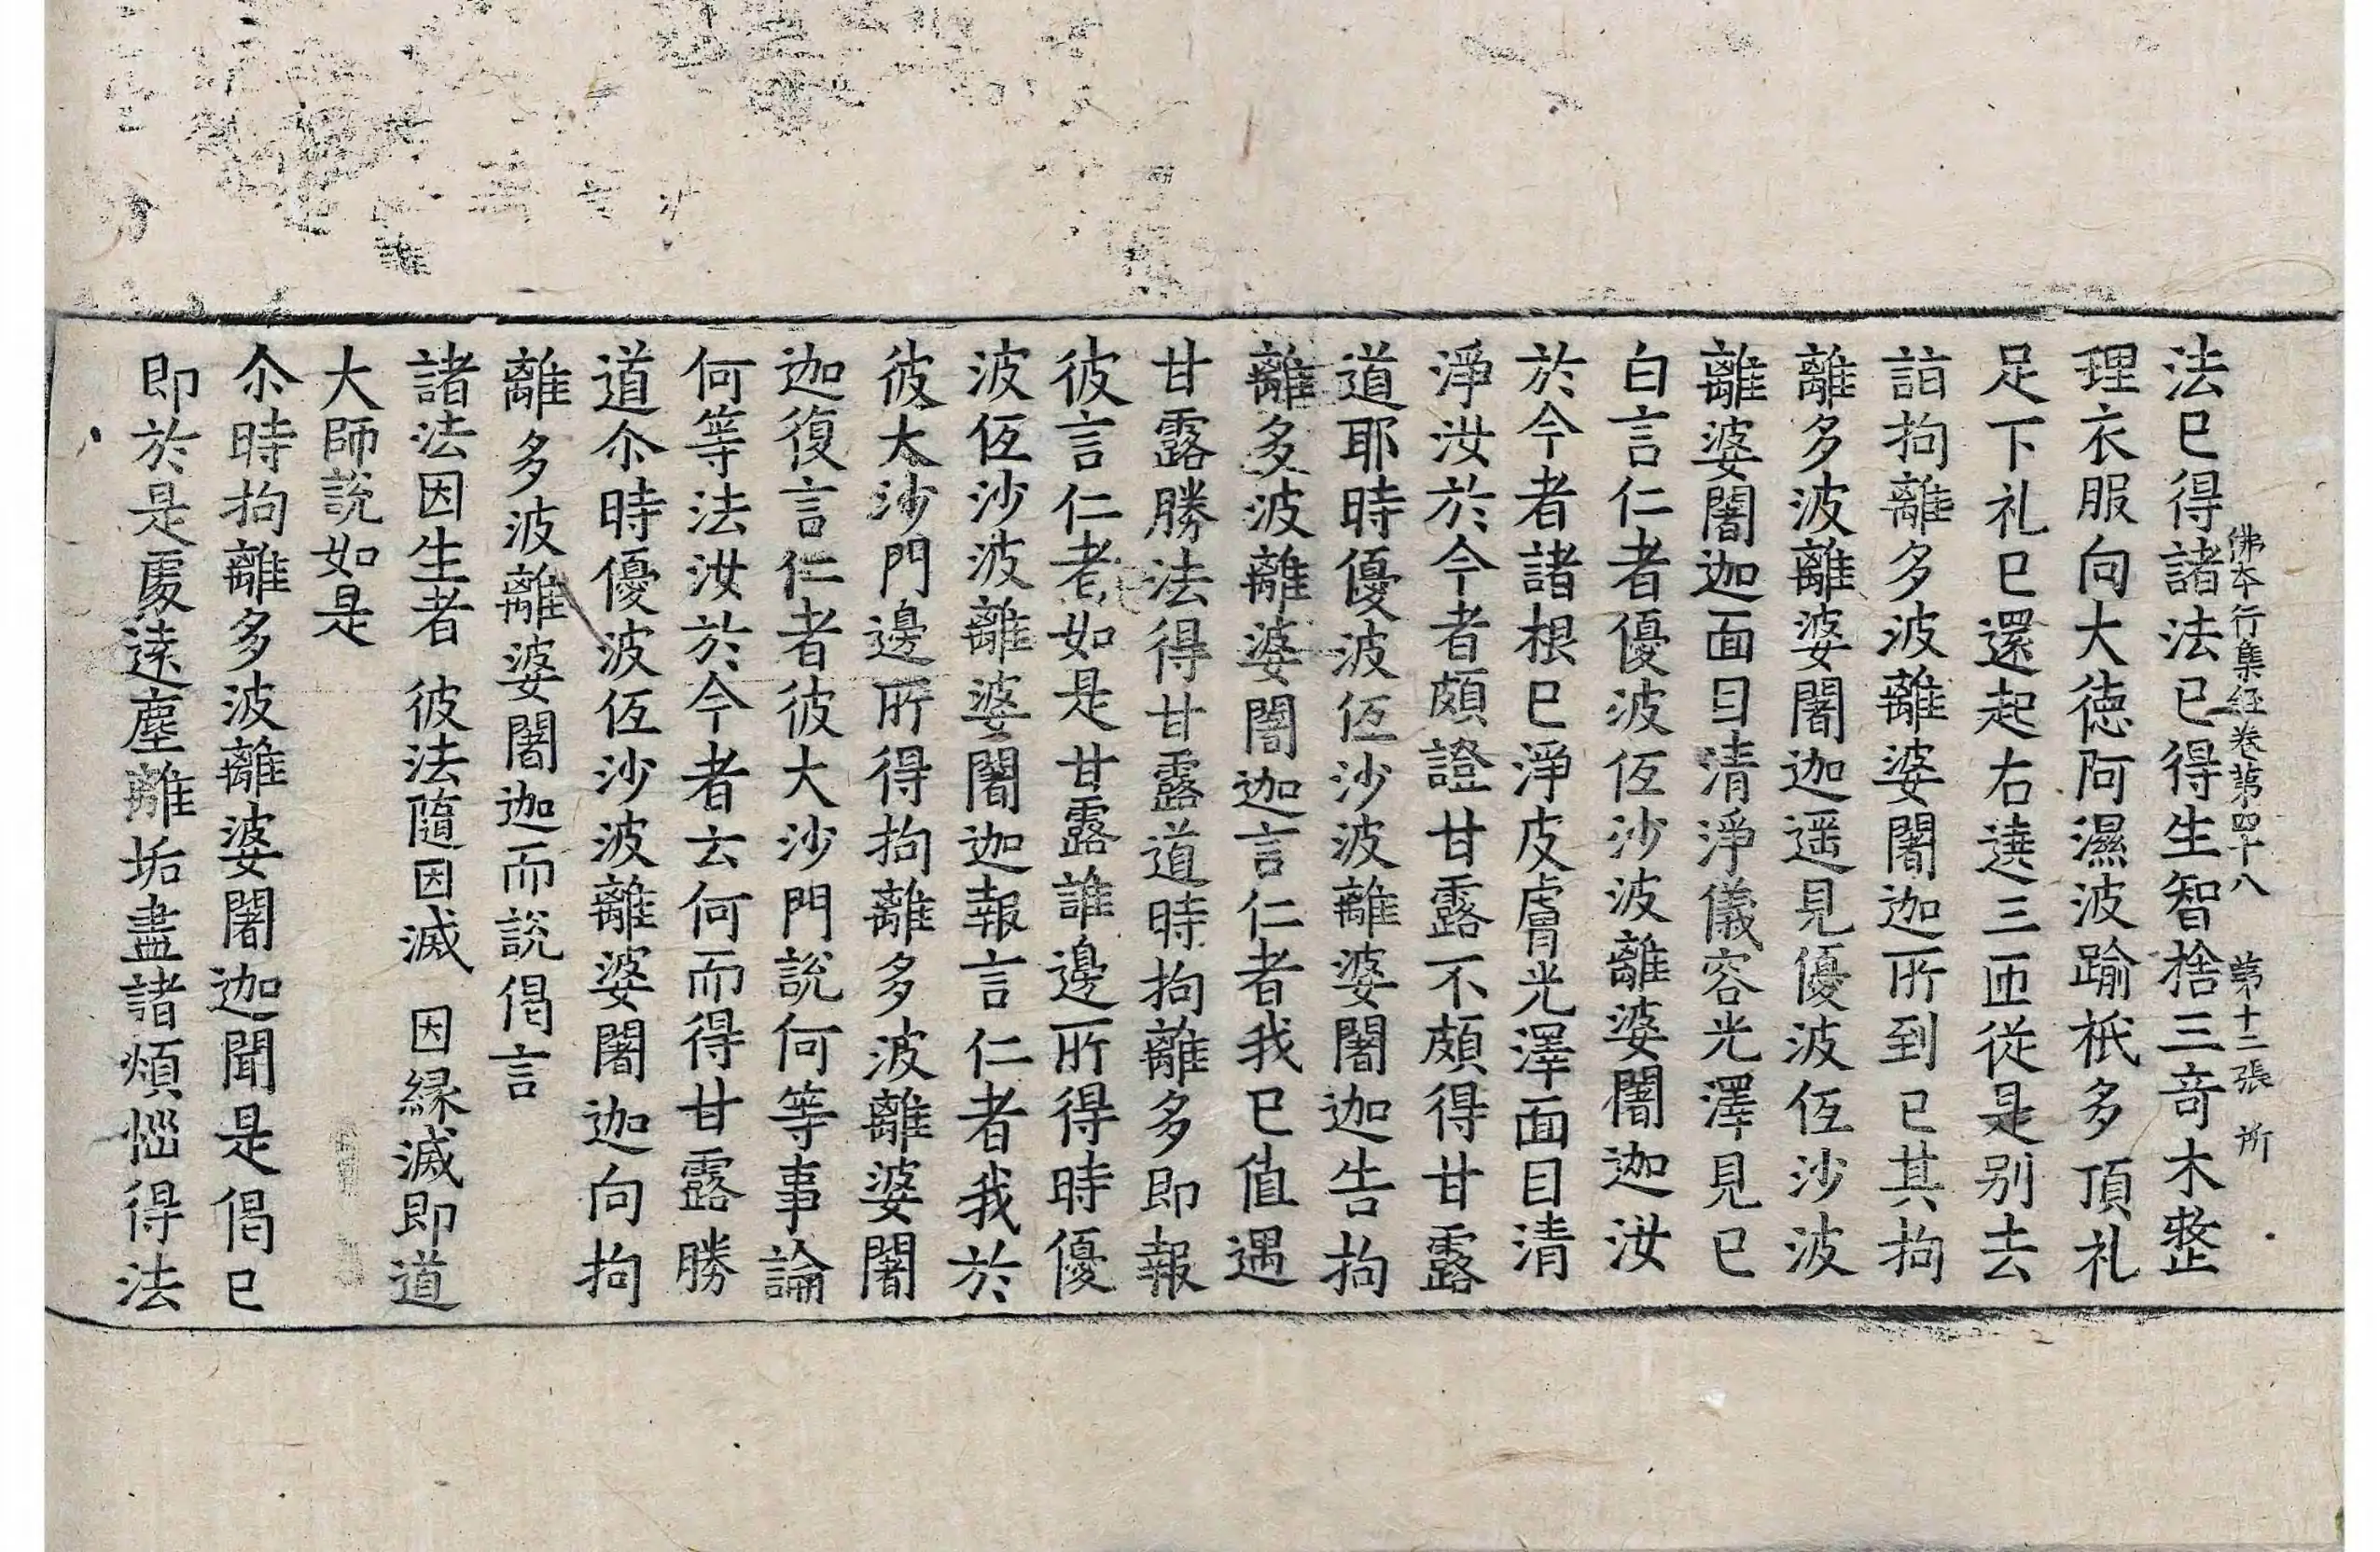 佛本行集経卷第四十八　第十二張　所
法已得諸法已得生智捨三竒木整
理衣服向大徳阿濕波踰祇多頂礼
足下礼已還起右遶三匝從是别去
詣拘離多波離婆闍迦所到已其拘
離多波離婆闍迦遥見優波伭沙波
離婆闍迦面目清淨儀容光澤見已
白言仁者優波伭沙波離婆闍迦汝
於今者諸根已淨皮膚光澤面目清
淨汝於今者頗證甘露不頗得甘露
道耶時優波伭沙波離婆闍迦告拘
離多波離婆闍迦言仁者我已值遇
甘露勝法得甘露道時拘離多即報
彼言仁者如是甘露誰邊所得時優
波伭沙波離婆闍迦報言仁者我於
彼大沙門邊所得拘離多波離婆闍
迦復言仁者彼大沙門說何等事論
何等法汝於今者云何而得甘露勝
道尒時優波伭沙波離婆闍迦向拘
離多波離婆闍迦而說偈言
諸法因生者　彼法隨因滅　因縁滅即道
大師說如是
尒時拘離多波離婆闍迦聞是偈已
即於是處逺塵離垢盡諸煩惱得法